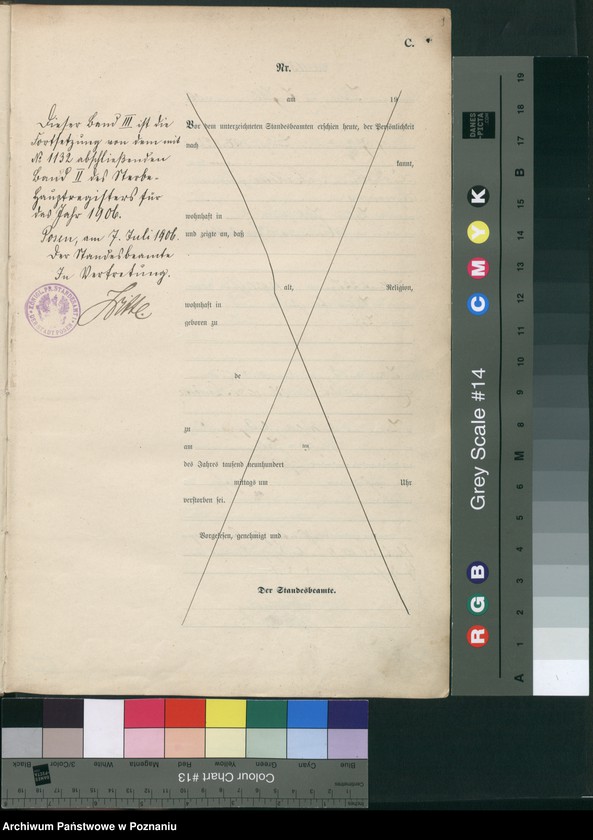 C.
Nr.
am 19
Vor dem unterzeichneten Standesbeamten erschien heute, der Persönlichkeit
nach
kannt,
wohnhaft in
und zeigte an, daß
alt, Religion,
wohnhaft in
geboren zu
de
zu
am
des Jahres tausend neunhundert
mittags um Uhr
verstorben sei.
Vorgelesen, genehmigt und
Der Standesbeamte.
Dieser Band III ist die
Fortsetzung von dem mit
No 1132 abschließenden
Band II des Sterbe-
Hauptregisters für
das Jahr 1906.
Posen, am 7. Juli 1906.
Der Standesbeamte
In Vertretung.
KÖNIGL. PR. STANDESAMT
Grey Scale #14
A 1 2 3 4 5 6 M 8 9 10 11 12 13 14 15 B 17 18 19
R G B
C M Y K
DANES
PICTA
.COM
Colour Chart #13
Blue Cyan Green Yellow Red Magenta White 3/Color Black
Centimetres
Inches
Archiwum Państwowe w Poznaniu